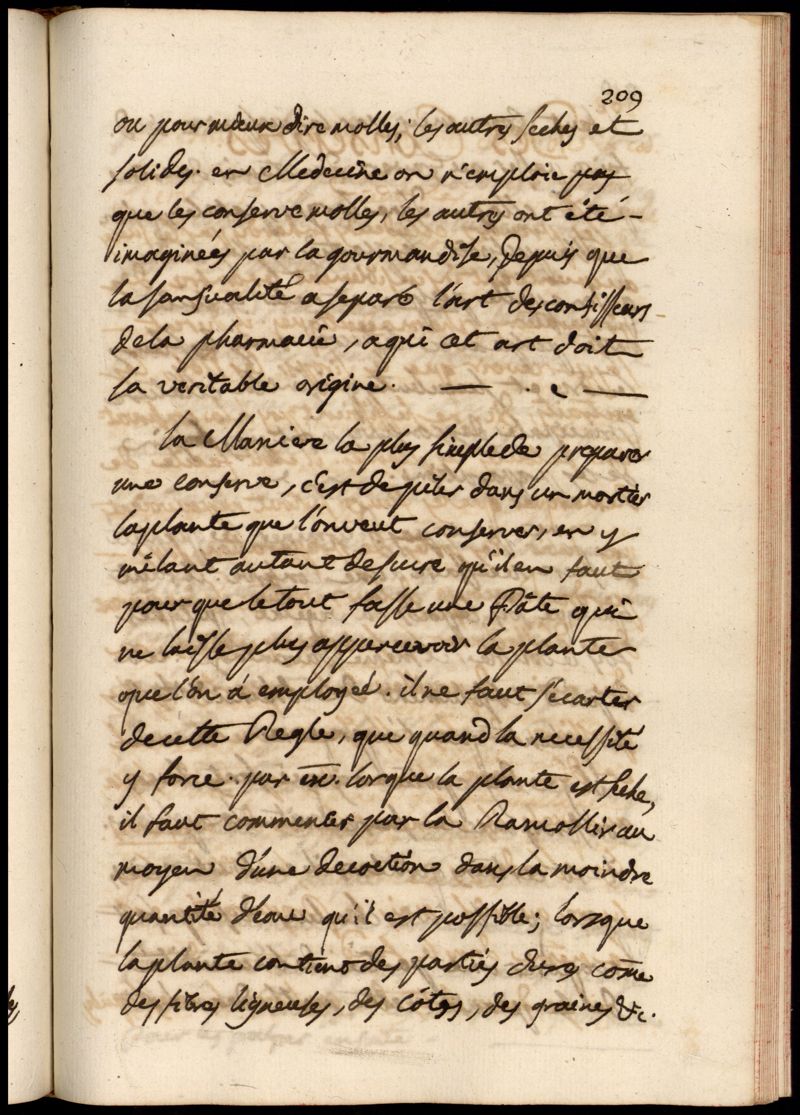 209
ou pour mieux dire molles; les autres seches et
solides. en Medecine on n'emploie pas
que les conserve molles, les autres ont été -
imaginées par la gourmandise, Depuis que
la sansualité a separé l'art des confisseurs
de la pharmacie, a qui cet art doit
sa veritable origine.
la Maniere la plus simple de preparer
une conserve, c'est de piler dans un mortier
la plante que l'on veut conserver, en y
mêlant autant de sucre qu'il en faut
pour que le tout fasse une Pâte qui
ne laisse plus appercevoir la plante
que l'on a employée. il ne faut s'ecarter
de cette Regle, que quand la necessité
y force. par ex. lorque la plante est seche,
il faut commenter par la Ramollir au
moyen d'une decoction dans la moindre
quantité d'eau qu'il est possible; lorsque
la plante contient des parties dures come
des fibres ligneuses, des côtes, des graines &c.